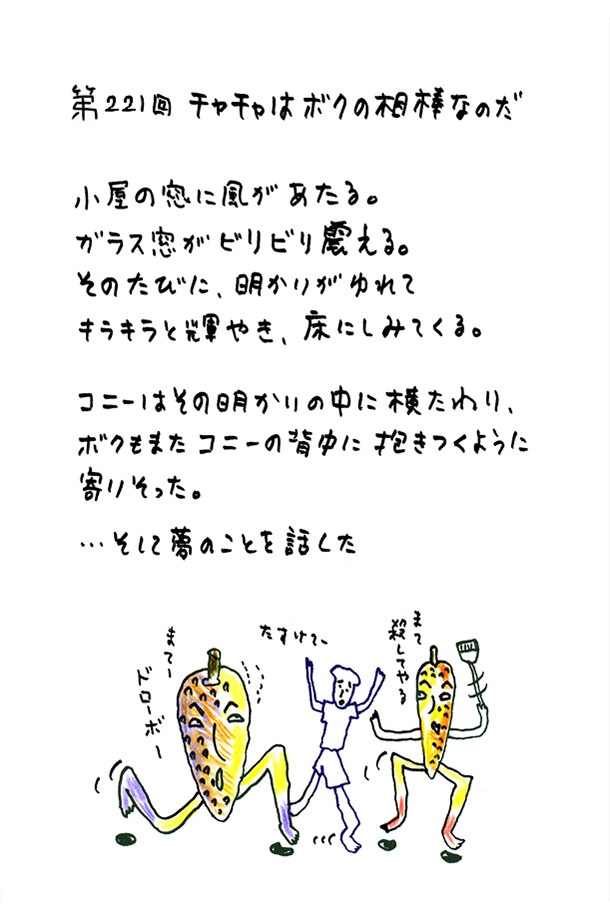 第221回 チャチャはボクの相棒なのだ
小屋の窓に風があたる。
ガラス窓がビリビリ震える。
そのたびに、明かりがゆれて
キラキラと輝やき、床にしみてくる。
コニーはその明かりの中に横たわり、
ボクもまたコニーの背中に抱きつくように
寄りそった。
…そして夢のことを話した
まてー
ドローボー
たすけてー
まて
殺してやる